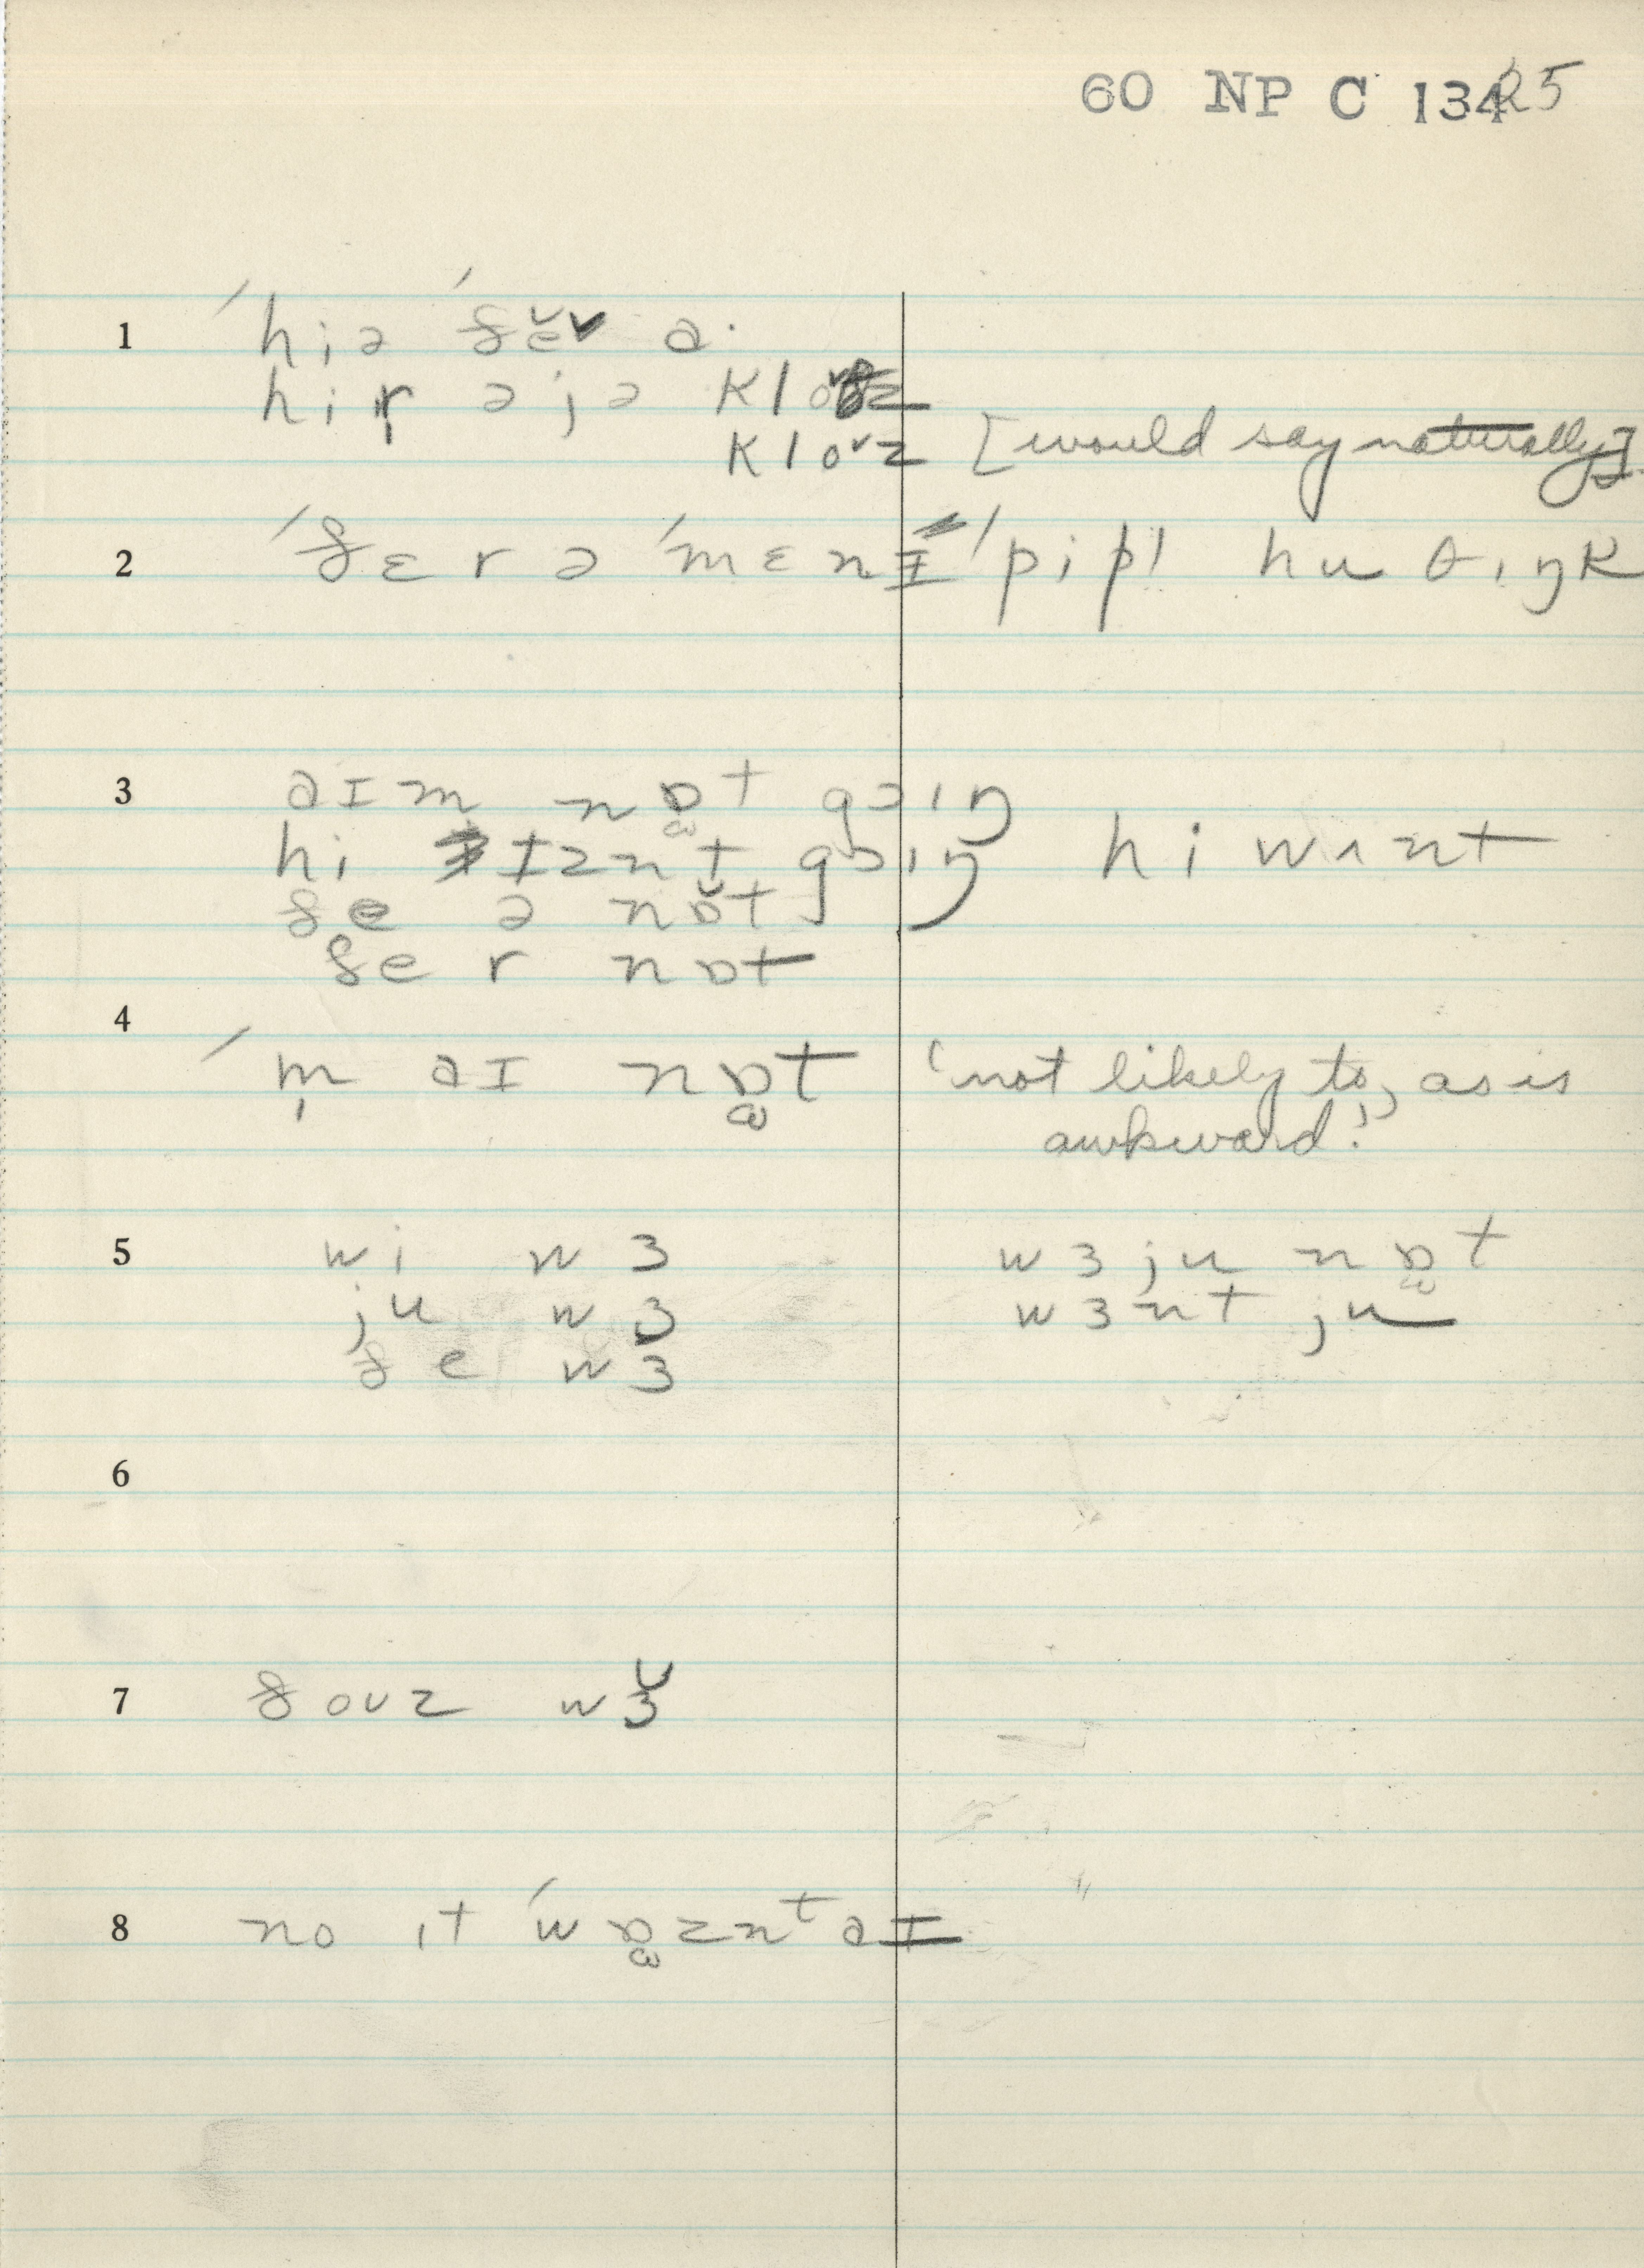 60 NP C 134 25
1 ˈhiə ˈðe̬v ə·
hir əjə kloðz
klovz [would say naturally]
2 ˈðɛrə ˈmɛnɪ ˈpipl hu θıŋk
3 aɪm nɒ̫t gɔıŋ
hi ɪznt gɔıŋ hi wʌnt
ðe ə nɒ̬t
ðe r nɒt
4 ˈm̩ aɪ nɒ̫t 'not likely to, as is
awkward!'
5 wi wɜ wɜ ju nɒ̫t
ju wɜ wɜnt ju
ðe wɜ
6
7 ðovz wɜ̬
8 no ıt ˈwɒ̫znᵗ aɪ